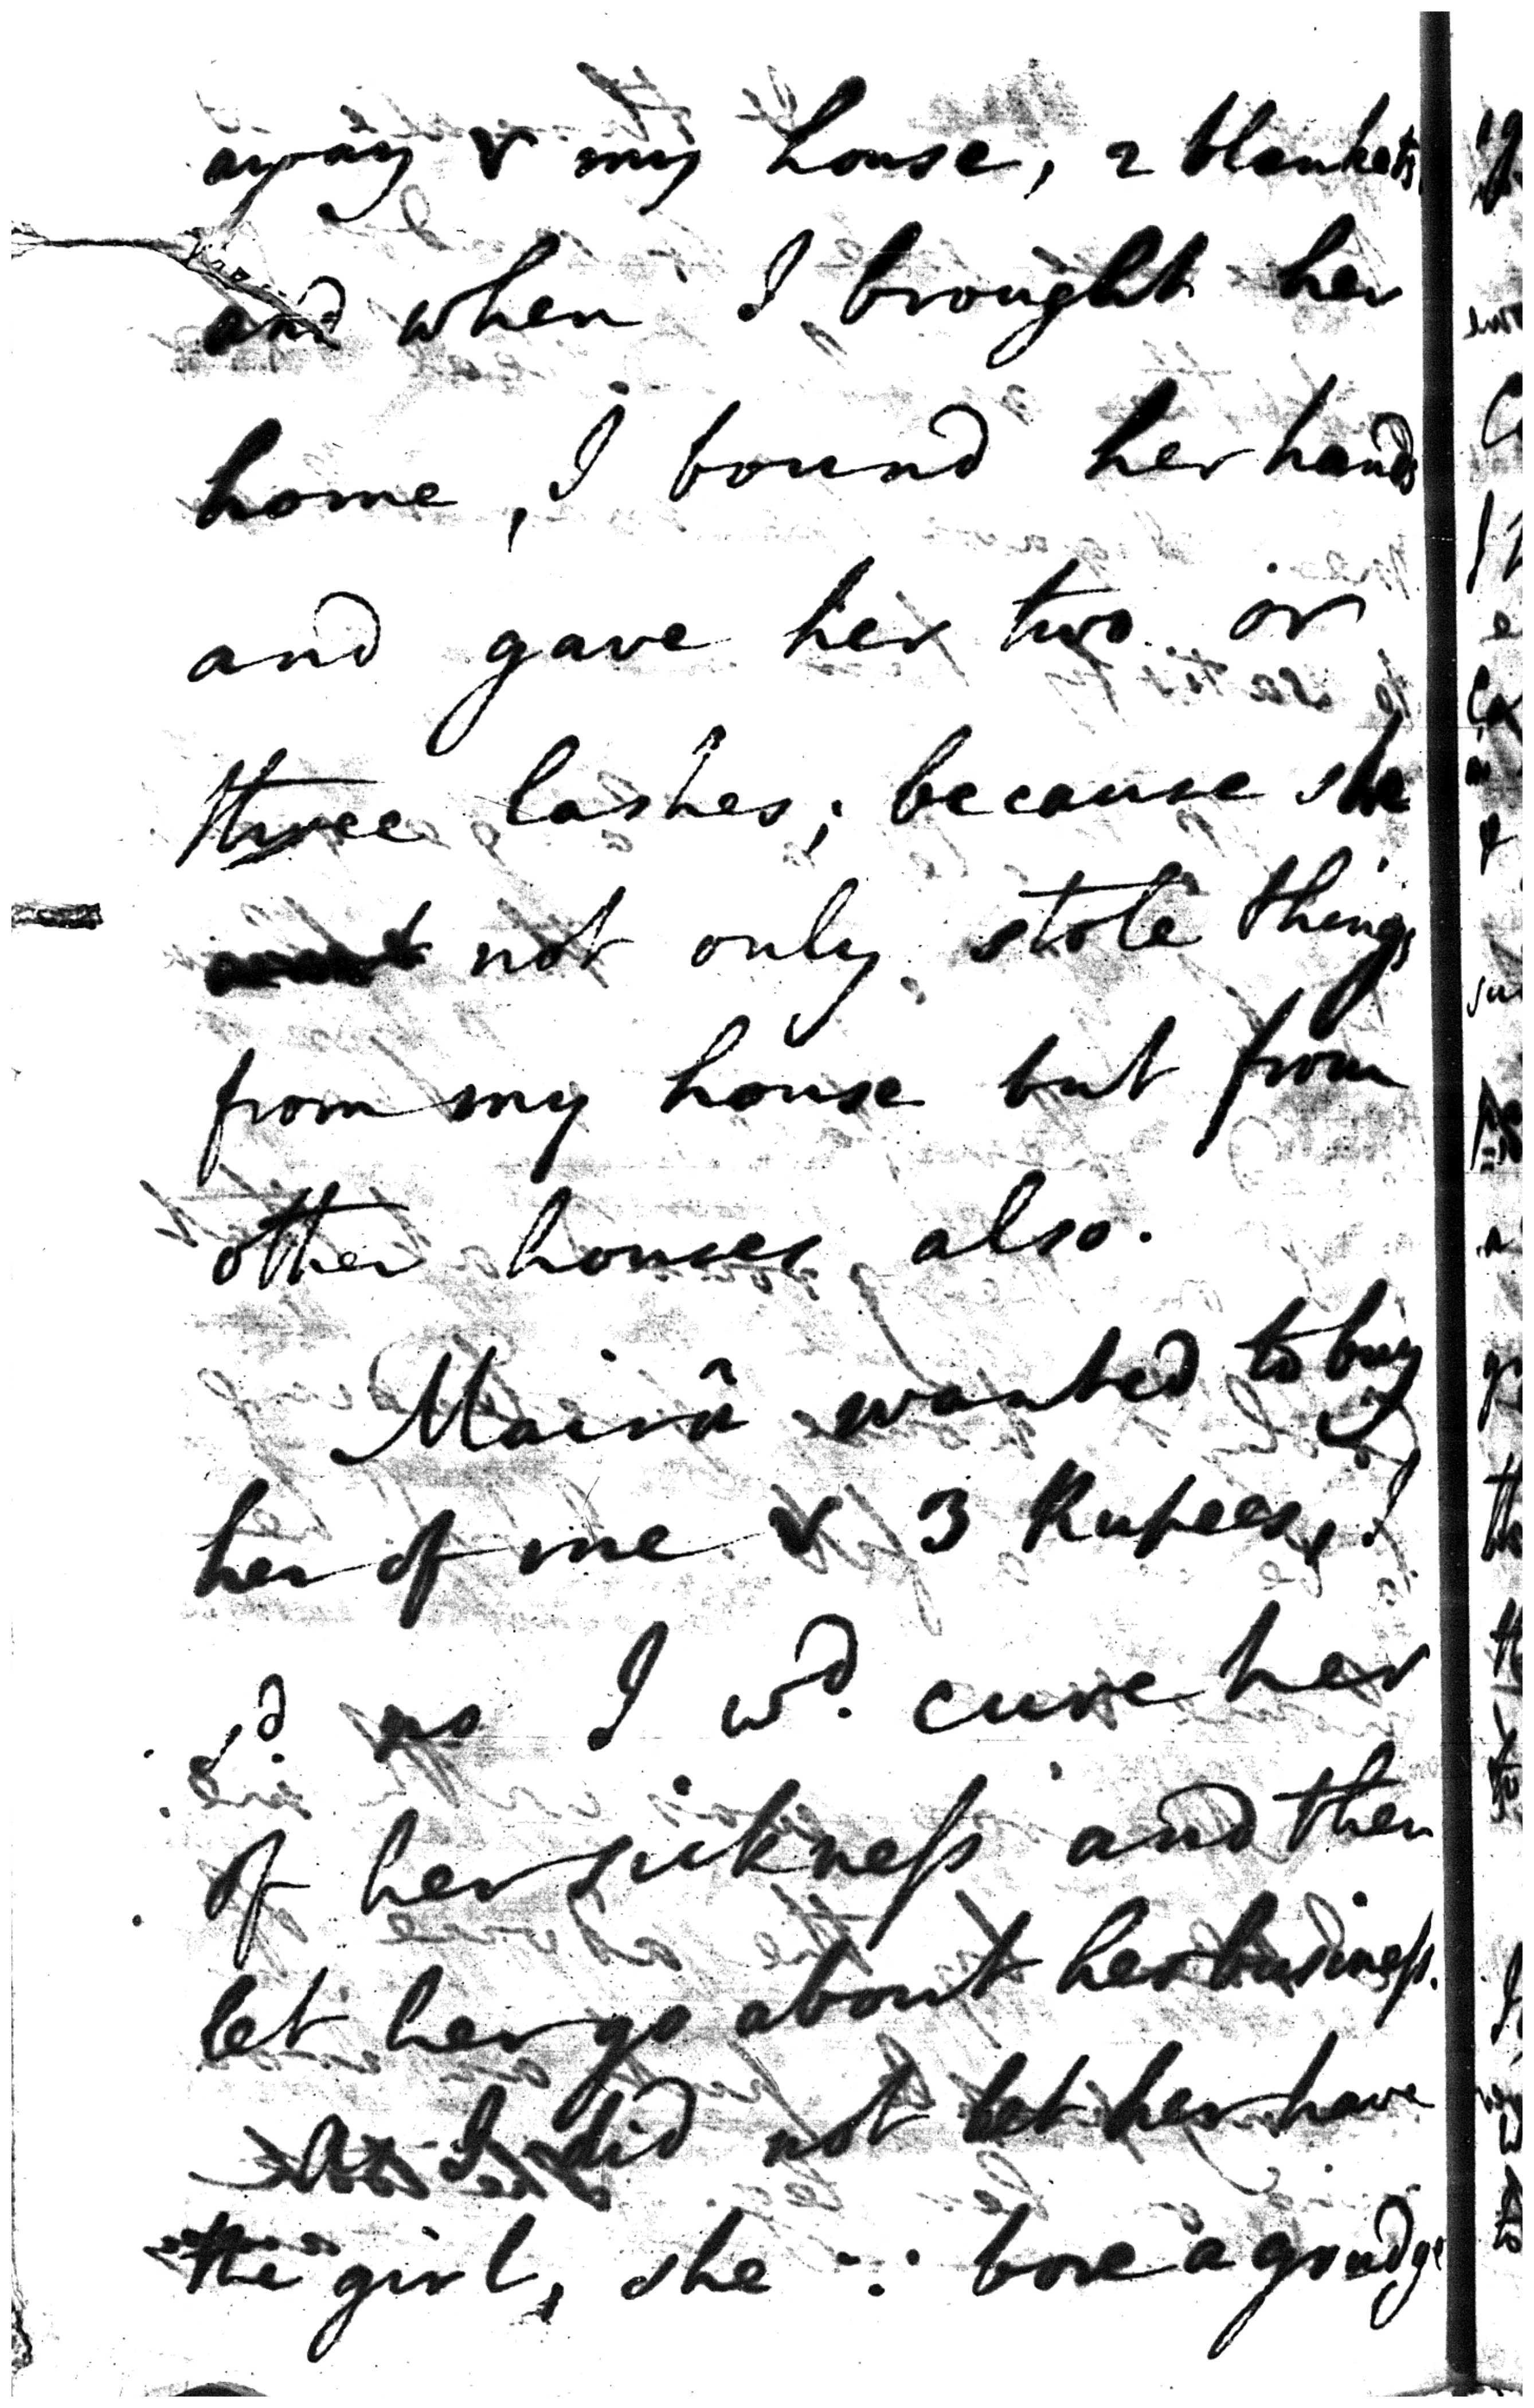 away & my house, 2 blankets,
and when I brought her
home, I bound her hands
and gave her two or
three lashes; because she
not only stole things
from my house but from
other houses also.
Mainâ wanted to buy
her of me & 3 Rupees, I
sd. no I wd. cure her
of her sickneſs and then
let her go about her busineſs.
As I did not let her have
the girl, she ∵ bore a grudge